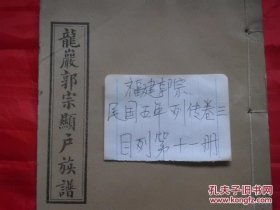 龍巖郭宗顯户族譜
福建郭宗
民国五年 列传卷三
目列第十一册